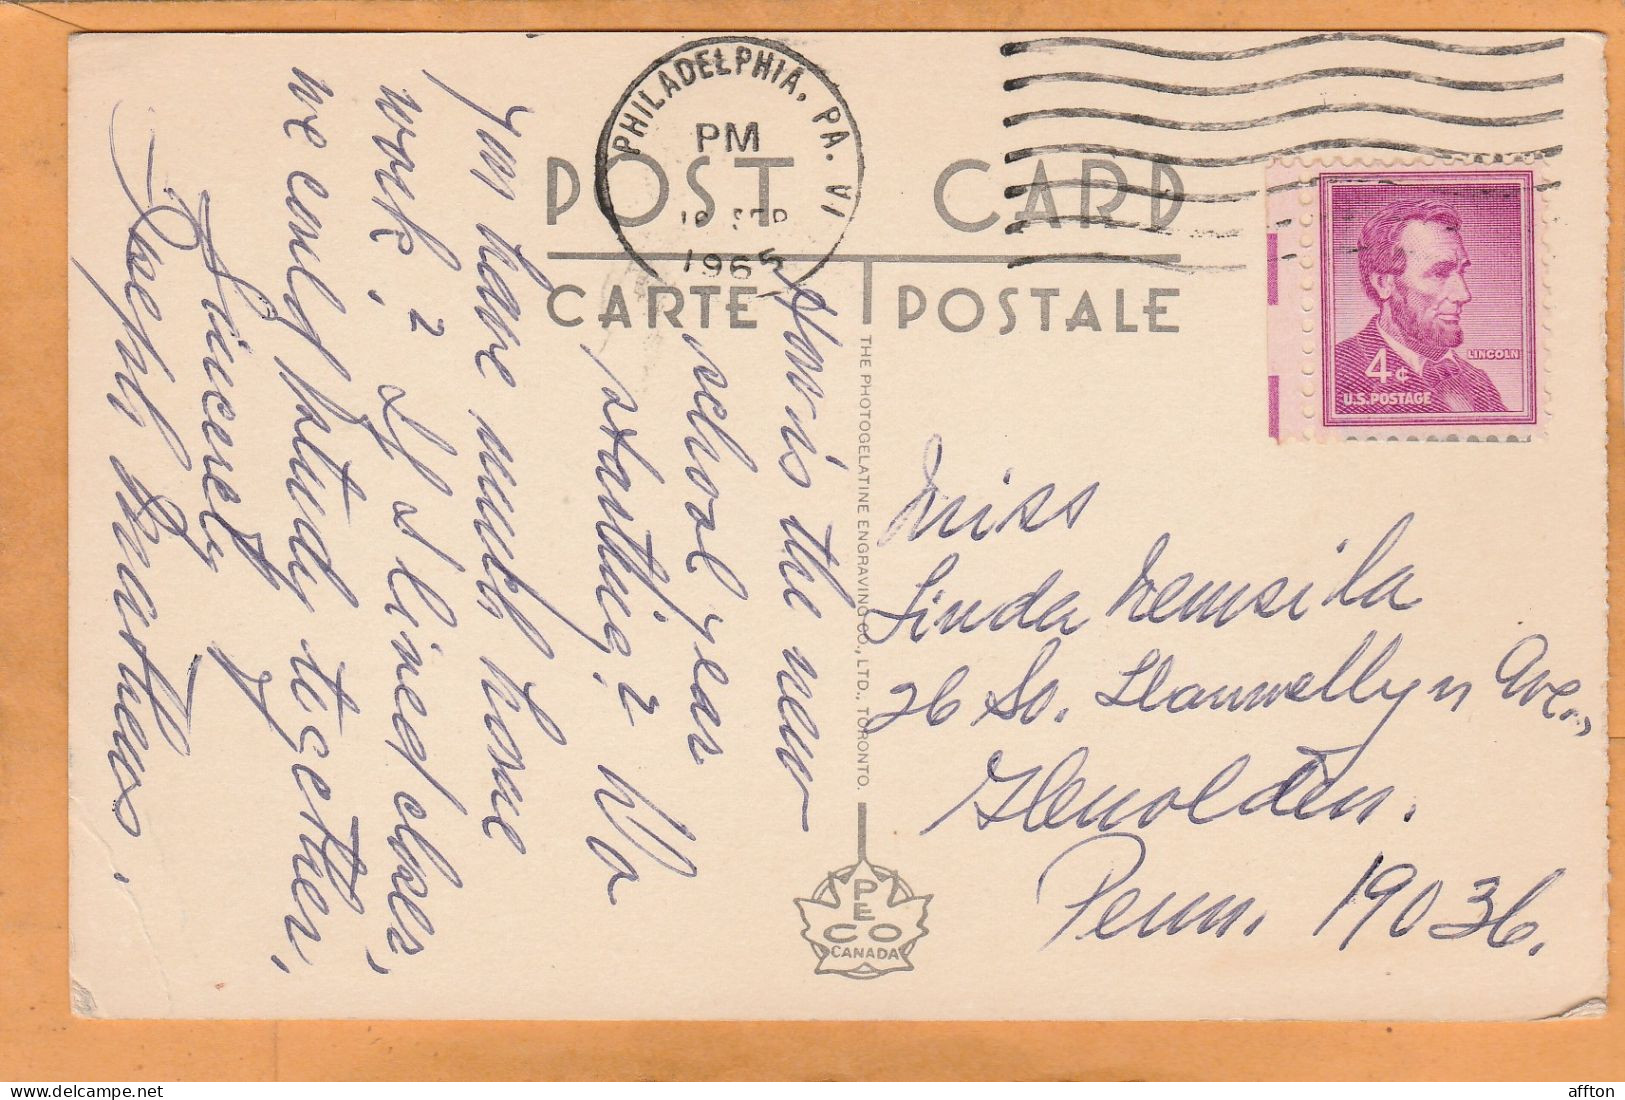 PHILADELPHIA, PA. VI
PM
SEP
1965
POST CARD
CARTE POSTALE
LINCOLN
4¢
U.S. POSTAGE
How is the new
school year
starting? Do
you have much home
work? If I lined closer,
we could study together.
Sincerely
Joseph Matthews.
Miss
Linda
26 So. Llanwellyn Ave.,
Glenolden.
Penn. 19036.
THE PHOTOGELATINE ENGRAVING CO., LTD., TORONTO.
PECO
CANADA
affton